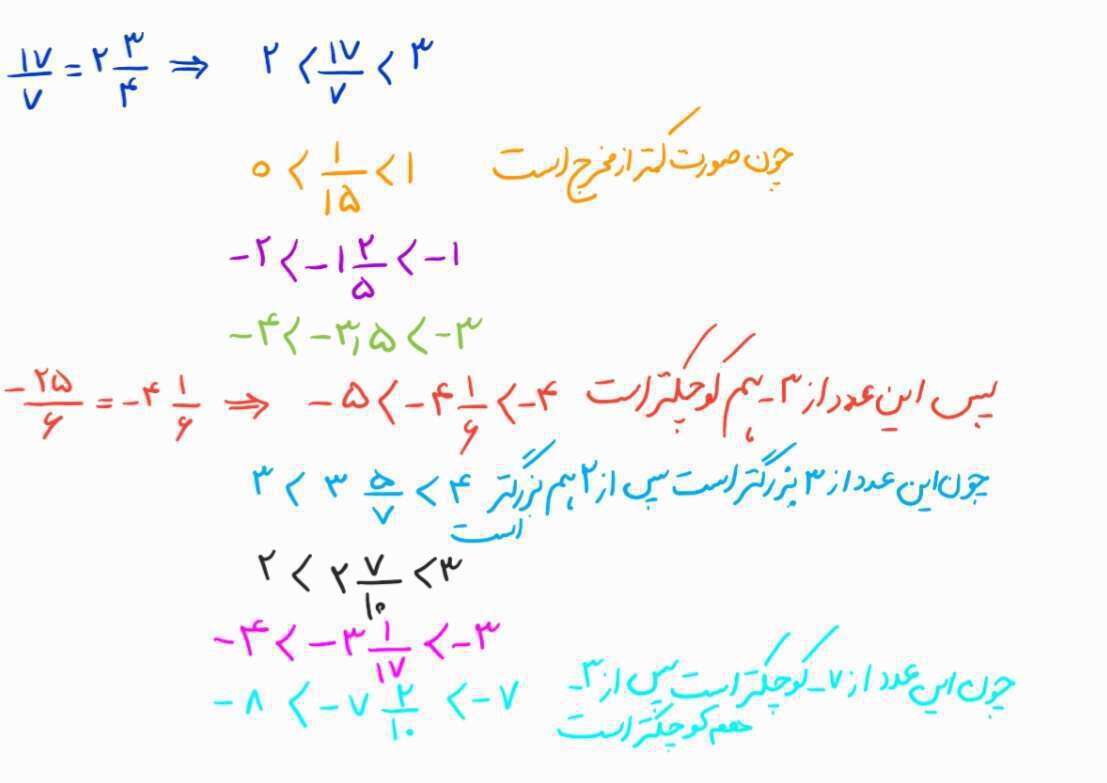 ۱۷/۷ = ۲ ۳/۴ ⇒ ۲ < ۱۷/۷ < ۳
۰ < ۱/۱۵ < ۱ چون صورت کمتر از مخرج است
-۲ < -۱ ۲/۵ < -۱
-۴ < -۳٫۵ < -۳
-۲۵/۶ = -۴ ۱/۶ ⇒ -۵ < -۴ ۱/۶ < -۴ پس این عدد از ۳- هم کوچکتر است
۳ < ۳ ۵/۷ < ۴ چون این عدد از ۳ بزرگتر است پس از ۲ هم بزرگتر
است
۲ < ۲ ۷/۱۰ < ۳
-۴ < -۳ ۱/۱۷ < -۳
-۸ < -۷ ۲/۱۰ < -۷ چون این عدد از ۷- کوچکتر است پس از ۳-
هم کوچکتر است